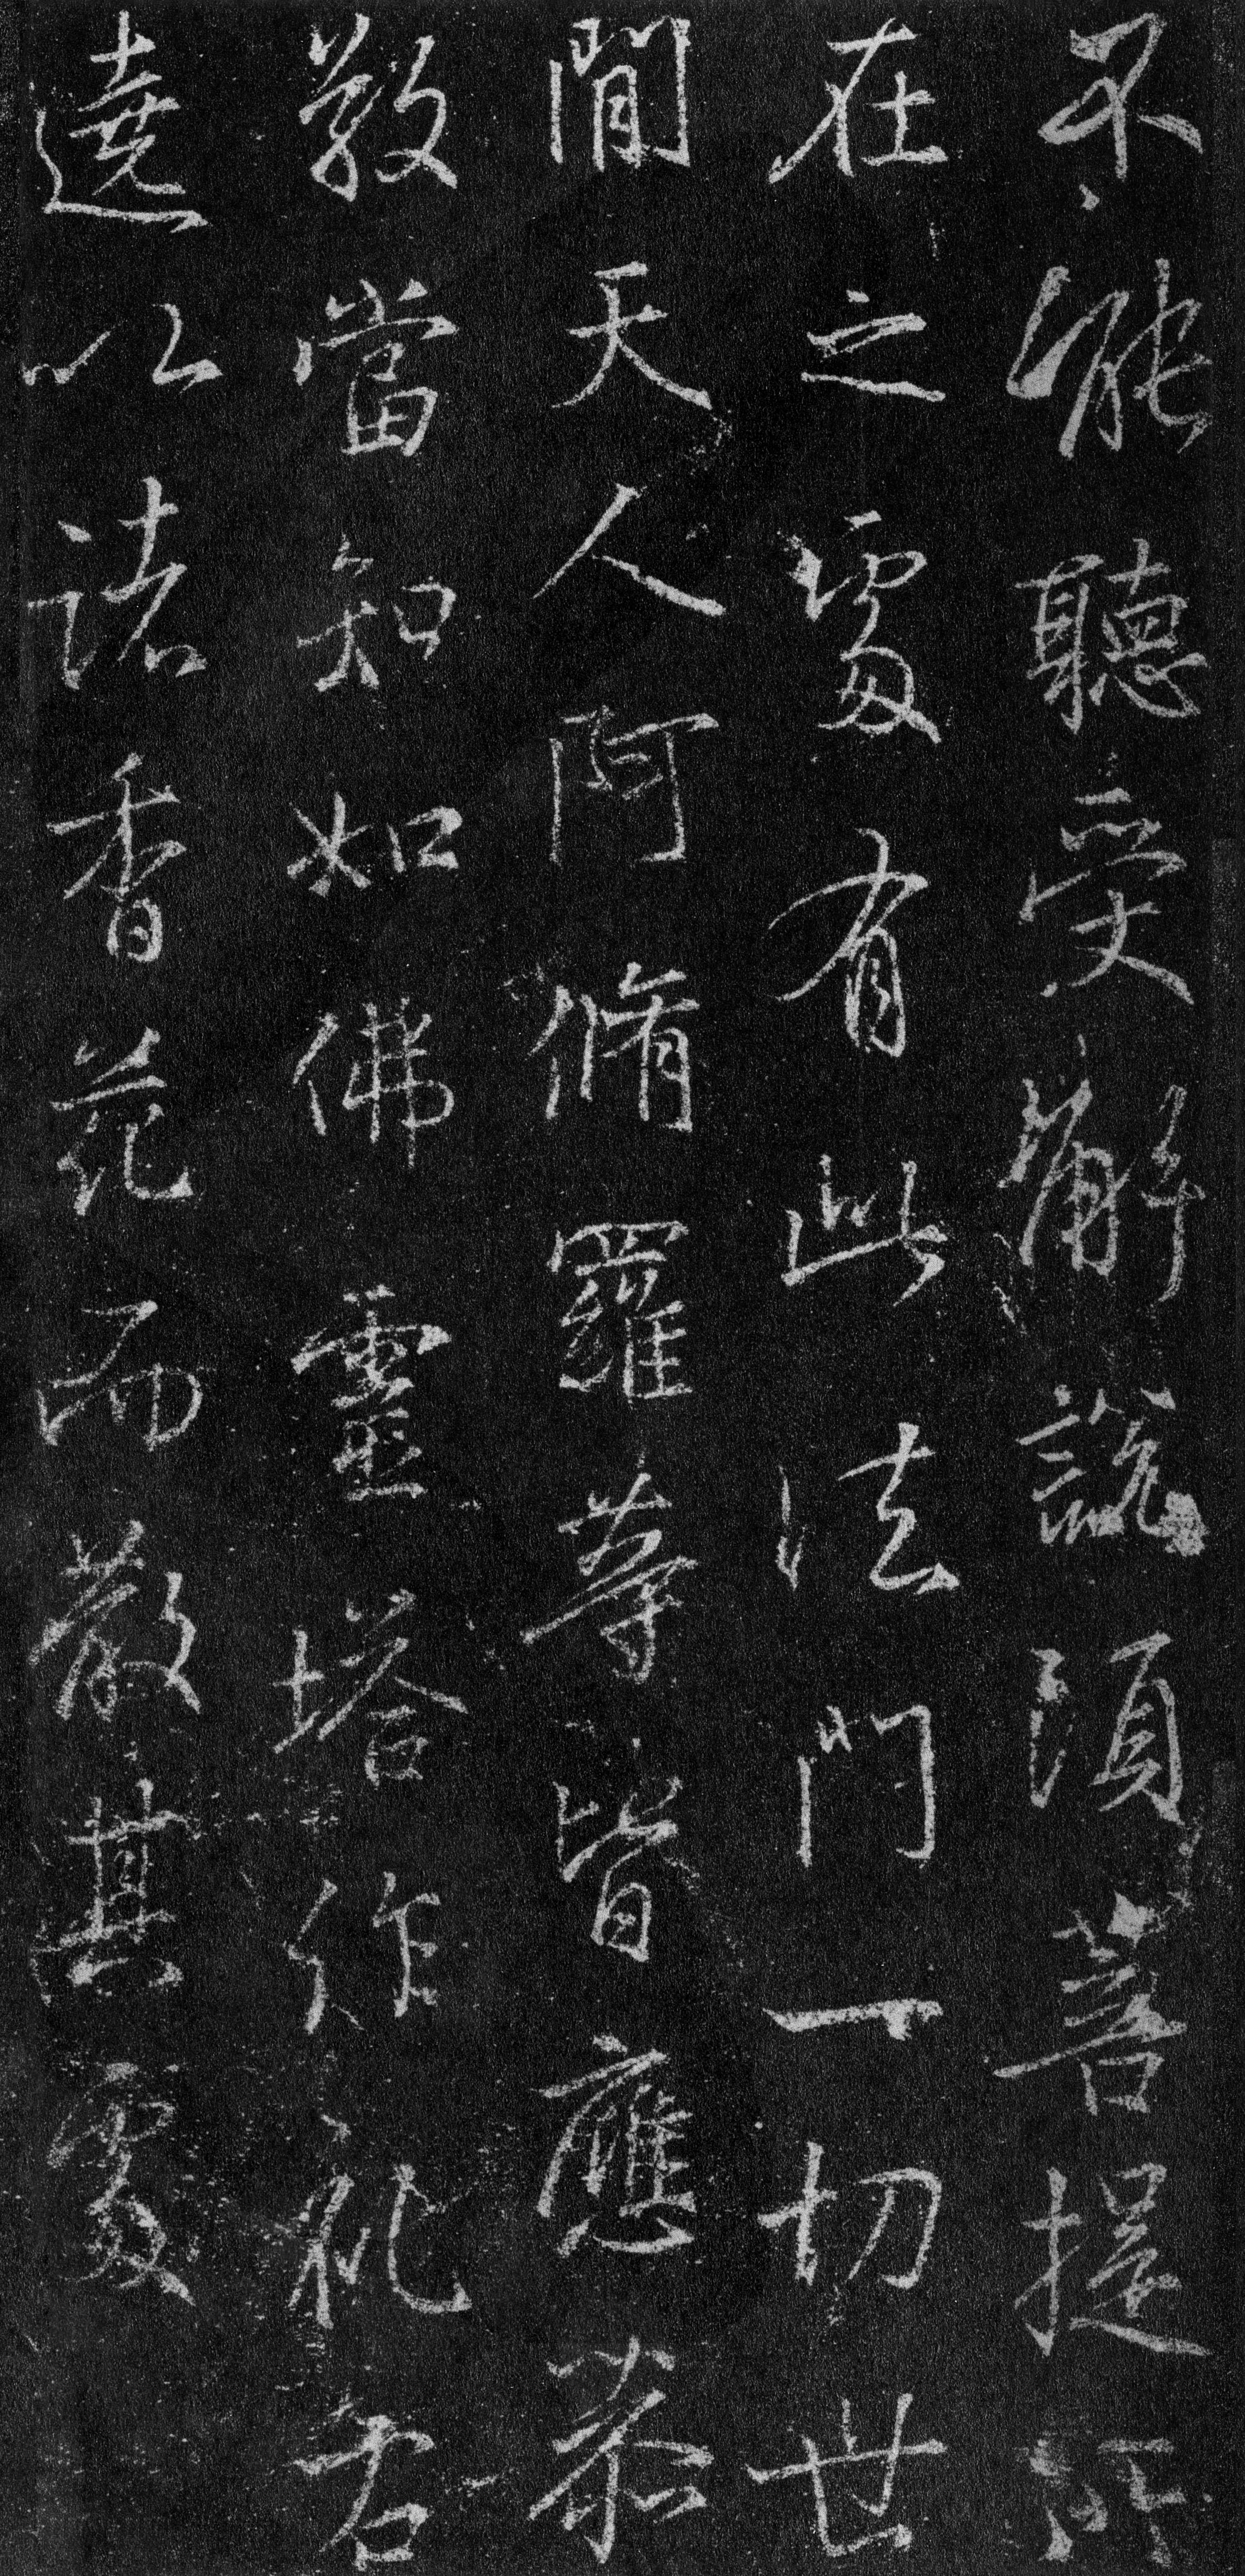 不能聽受解説須菩提所
在之處有此法門一切世
間天人阿脩羅等皆應恭
敬當知如佛靈塔作礼右
遶以諸香花而散其處